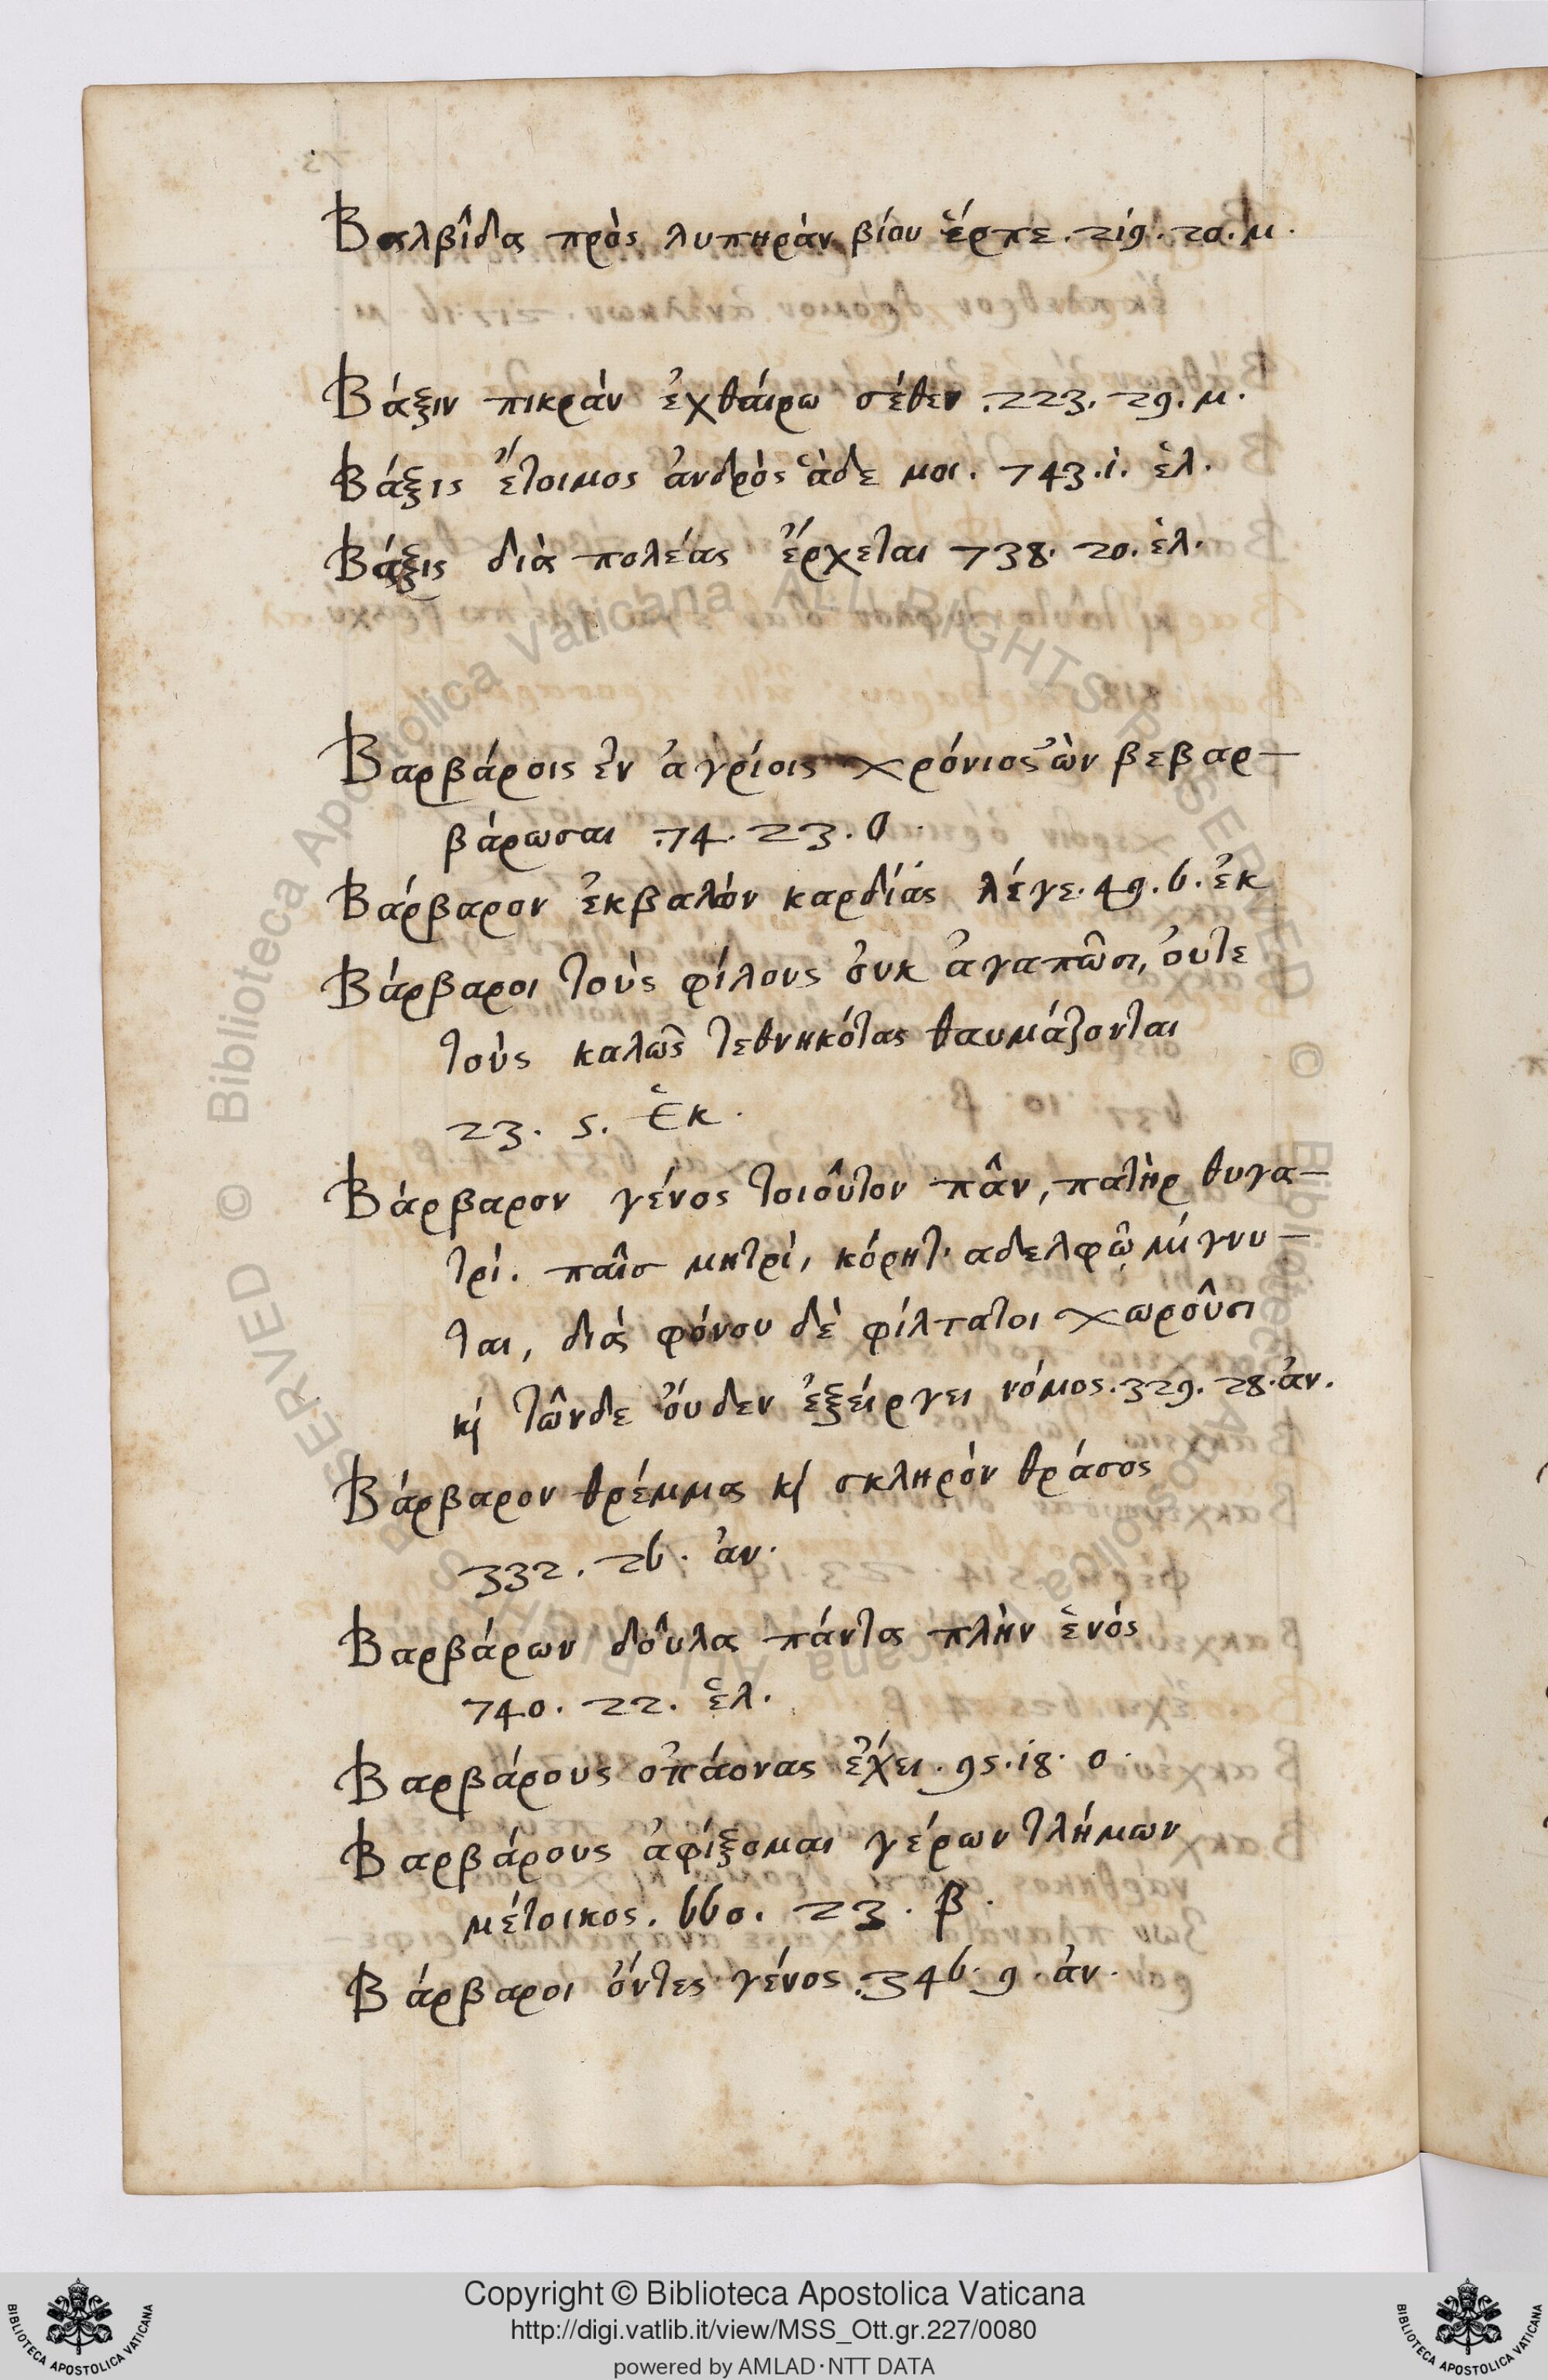 Βαλβῖδα πρὸς λυπηρὰν βίου ἕρπε. 219. 20. μ.
Βάξιν πικρὰν ἐχθάιρω σέθεν. 223. 29. μ.
Βάξις ἕτοιμος ἀνδρὸς ἅδε μοι. 743. 1. ἑλ.
Βάξις διὰ πολέας ἔρχεται 738. 20. ἑλ.
Βαρβάροις ἐν ἀγρίοις χρόνιος ὢν βεβαρ-
βάρωσαι. 74. 23. ο.
Βάρβαρον ἐκβαλὼν καρδίας λέγε. 49. 6. ἐκ
Βάρβαροι τοὺς φίλους ὀυκ ἀγαπῶσι, ὀυτε
τοὺς καλῶς τεθνηκότας θαυμάζονται
23. 5. Ἑκ.
Βάρβαρον γένος τοιοῦτον πᾶν, πατὴρ θυγα-
τρί. παῖσ μητρὶ, κόρητ' αδελφῷ μίγνυ-
ται, διὰ φόνου δὲ φίλτατοι χωροῦσι
κὶ τῶνδε ὀύδεν ἐξείργει νόμος. 329. 28. ἀν.
Βάρβαρον θρέμμα κὶ σκληρὸν θράσος
332. 26. ἀν.
Βαρβάρων δοῦλα πάντα πλὴν ἑνός
740. 22. ἑλ.
Βαρβάρους οπάονας ἔχει. 95. 18. ο.
Βαρβάρους ἀφίξομαι γέρων τλήμων
μέτοικος. 660. 23. β.
Βάρβαροι ὄντες γένος. 346. 9. ἀν.
© Biblioteca Apostolica Vaticana ALL RIGHTS RESERVED
Copyright © Biblioteca Apostolica Vaticana
http://digi.vatlib.it/view/MSS_Ott.gr.227/0080
powered by AMLAD·NTT DATA
BIBLIOTECA APOSTOLICA VATICANA
BIBLIOTECA APOSTOLICA VATICANA